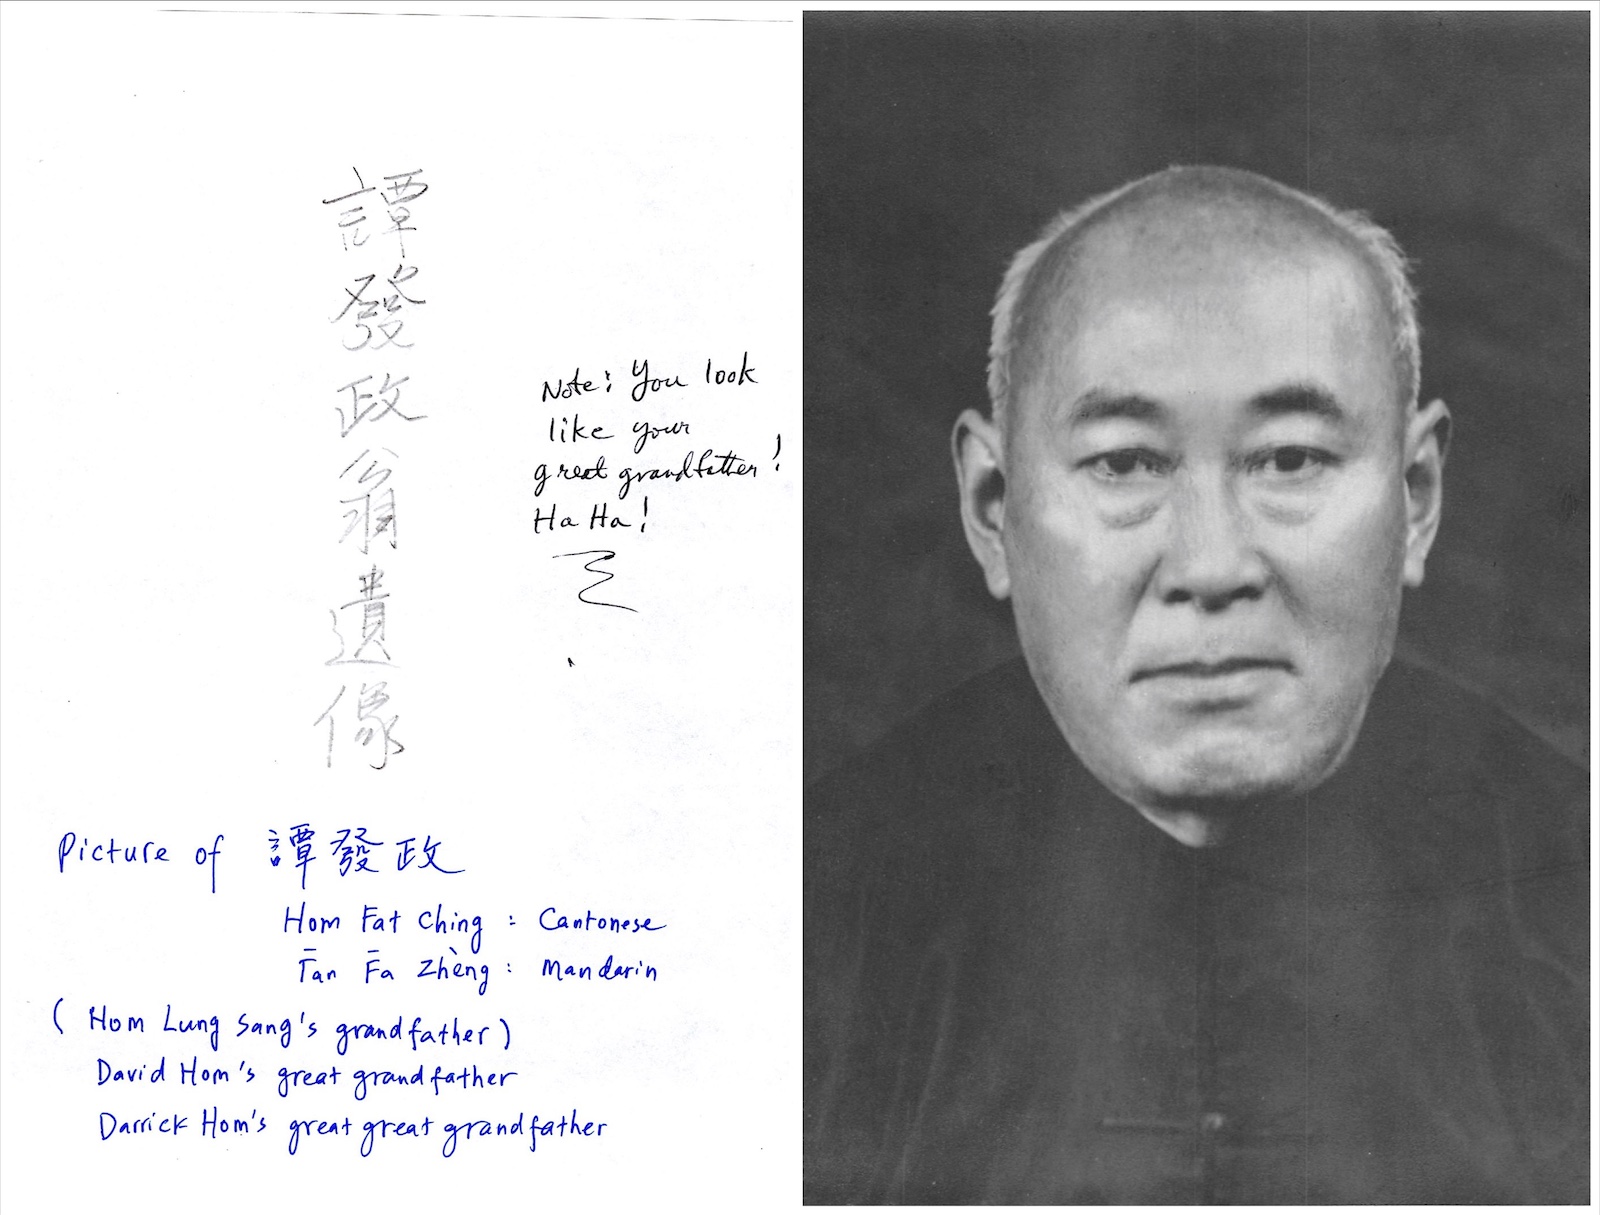 譚發政翁遺像
Note: You look
like your
great grandfather!
Ha Ha!
Picture of 譚發政
Hom Fat Ching : Cantonese
Tān Fā Zhèng : Mandarin
( Hom Lung Sang's grandfather )
David Hom's great grandfather
Darrick Hom's great great grandfather